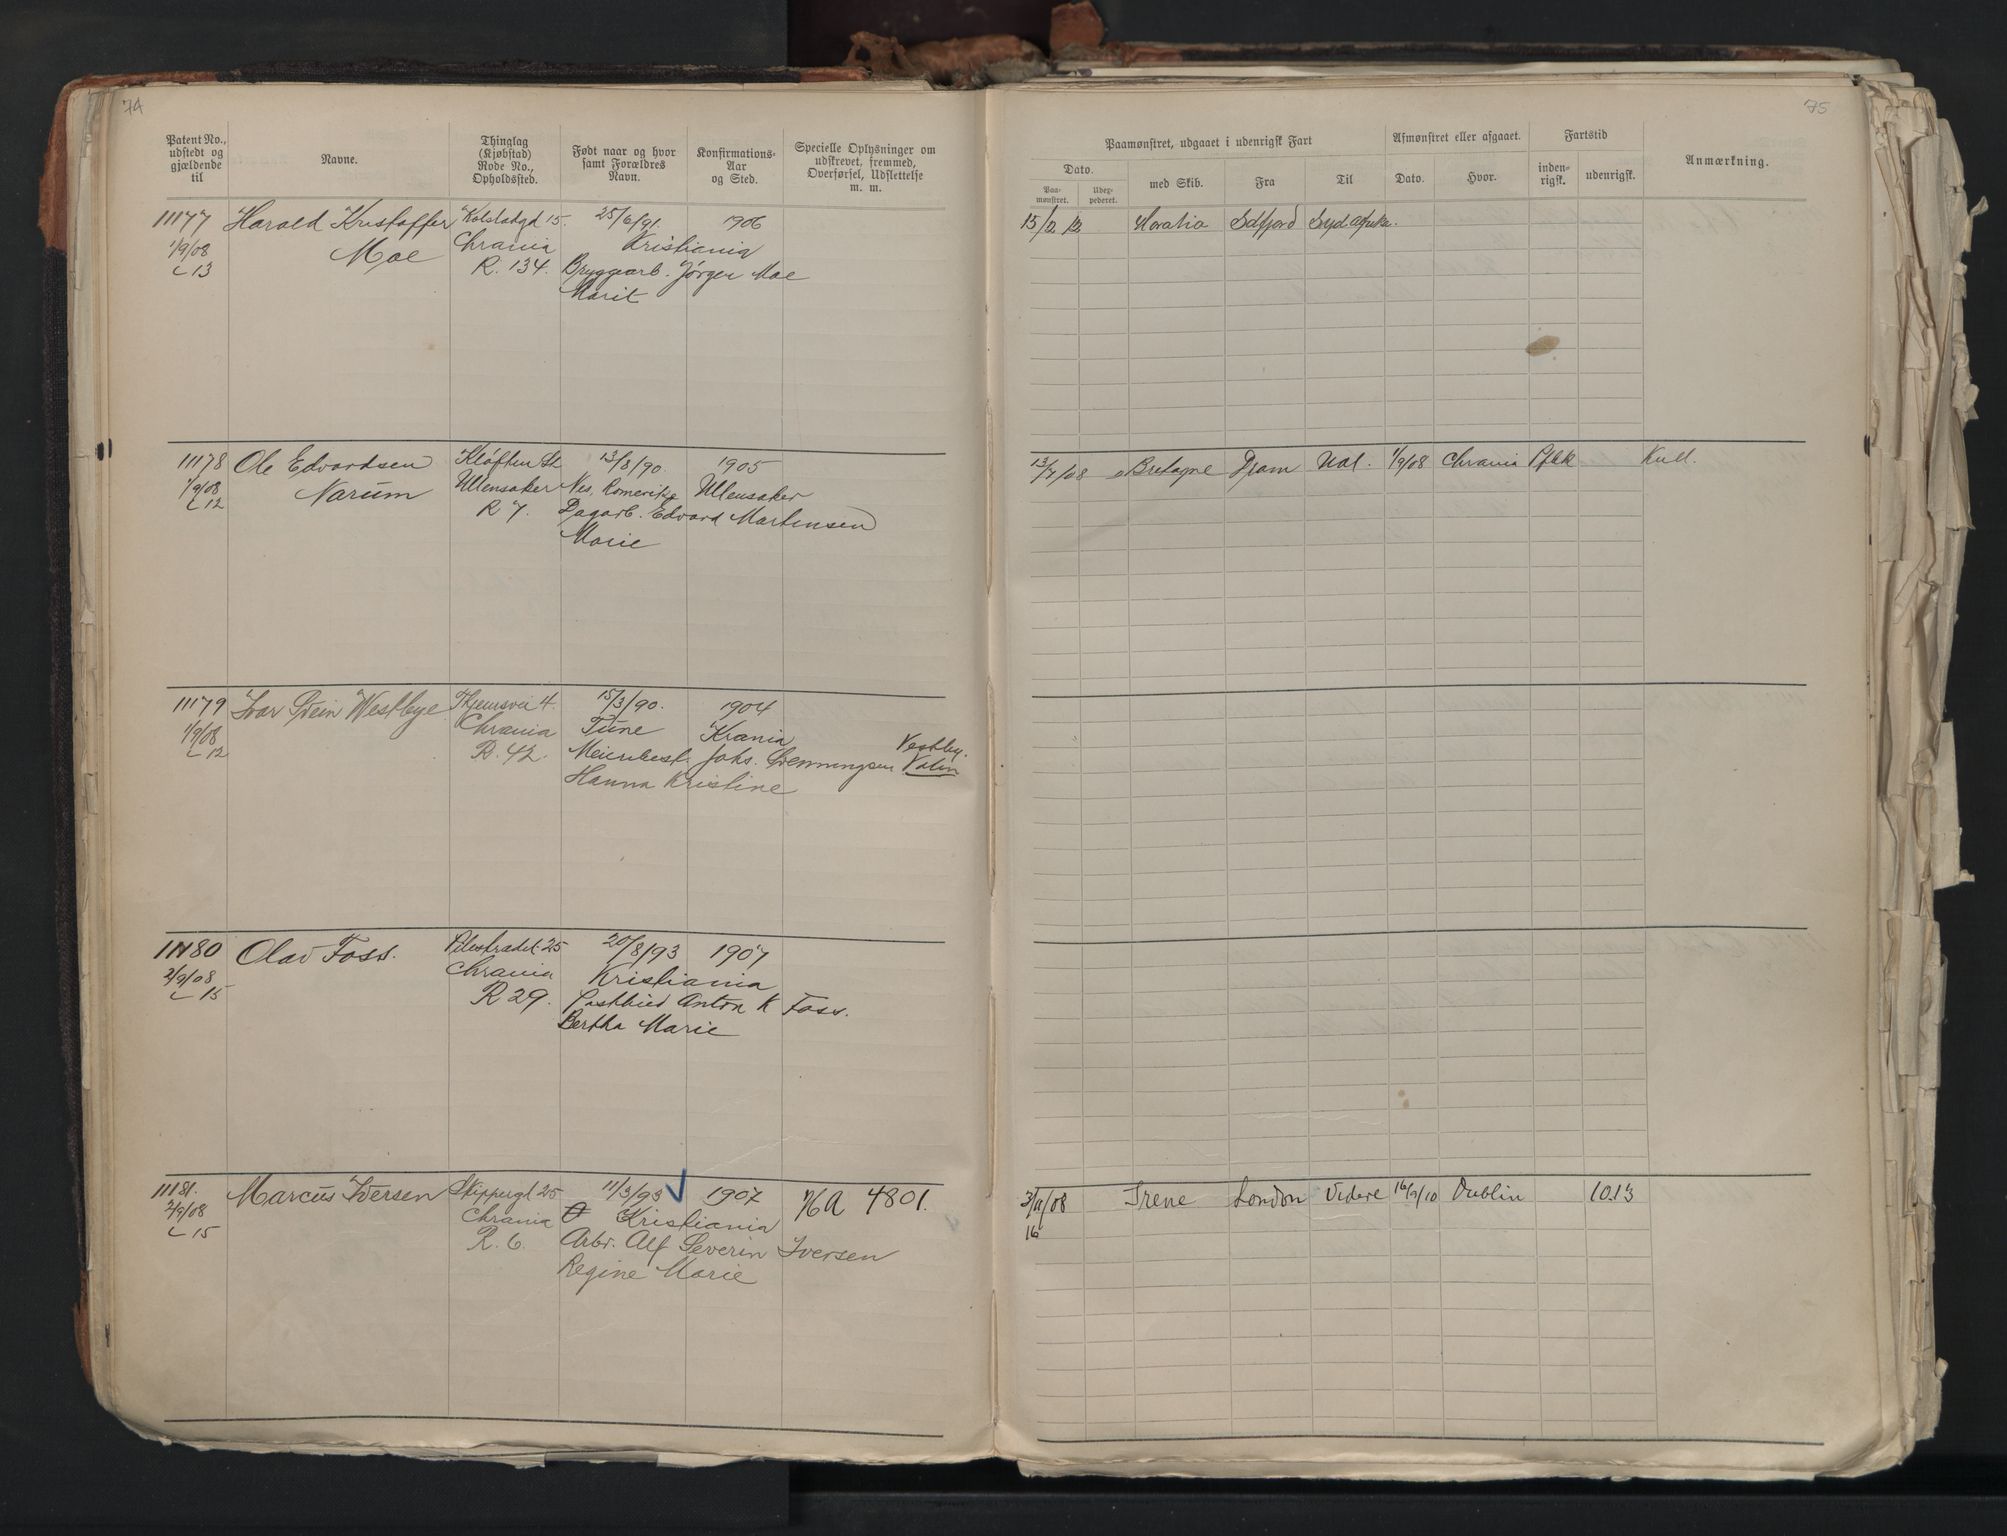 74
Patent No., udstedt og gjældende til
Navne.
Thinglag (Kjøbstad) Rode No., Opholdssted.
Født naar og hvor samt Forældres Navn.
Konfirmations-Aar og Sted.
Specielle Oplysninger om udskrevet, fremmed, Overførsel, Udslettelse m. m.
11177 Harald Kristoffer Kolstadgd 15. 25/6/91. 1906
1/9/08 Moe Chrania Kristiania
L 13 R. 134. Bryggearb. Jørgen Moe
Marit
11178 Ole Edvardsen Kløften St 13/8/90. 1905
1/9/08 Narum Ullensaker Nes, Romerike Ullensaker
L 12 R 7. Dagarb. Edvard Martinsen
Marie
11179 Ivar Svein Westbye 4. 15/3/90. 1904
1/9/08 Chrania Tune Krania Vestby.
L 12 R. 42. Meieribest. Johs. Svenningsen
Hanna Kristine
11180 Olav Foss. Pilestrædet 25 20/8/93 1907
2/9/08 Chrania Kristiania
L 15 R 29. Postbud Anton K Foss.
Bertha Marie
11181. Marcus Iversen Skippergt 25 11/3/93 1907 N6A 4801.
2/9/08 Chrania Kristiania
L 15 R. 6. Arbr. Alf Severin Iversen
Regine Marie
75
Paamønstret, udgaaet i udenrigsk Fart
Afmønstret eller afgaaet.
Fartstid
Anmærkning.
Dato.
Paa-mønstret.
Udex-pederet.
med Skib.
Fra
Til
Dato.
Hvor.
inden-rigsk.
udenrigsk.
15/2 12 Horatio Idfjord Sydafrika.
13/7/08 Bretagne Dram Ual. 1/9/08 Chrania Pflk Kull.
3/11/08 Irene London Videre 16/9/10 Dublin 10.13
16